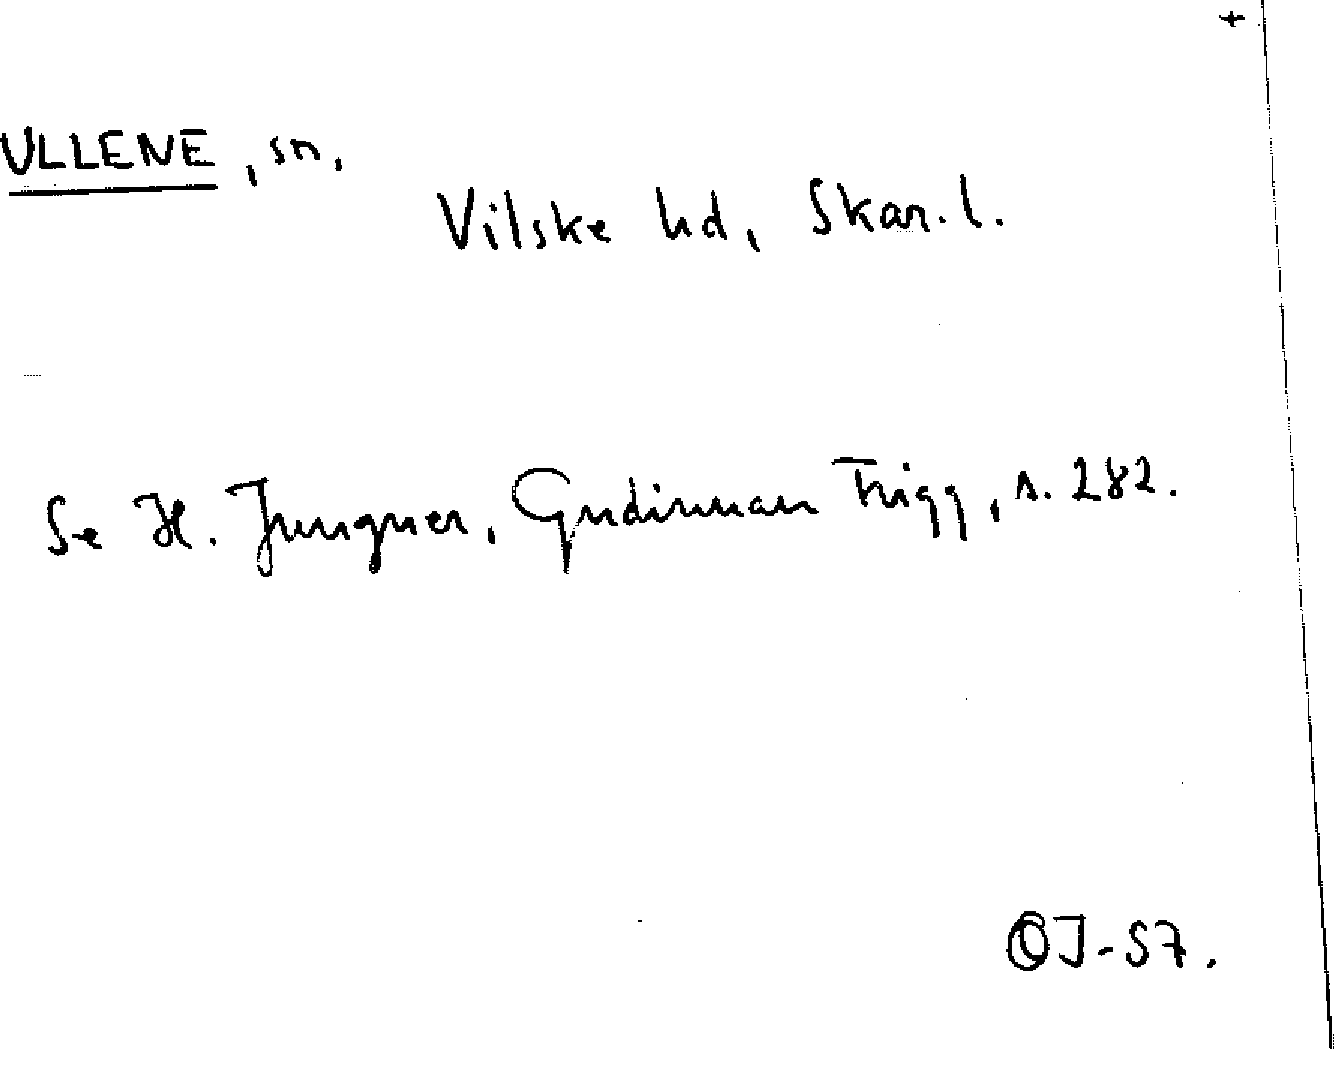 +
ULLENE, sn,
Vilske hd, Skar. l.
Se H. Jungner, Gudinnan Frigg, s. 282.
OJ-57.